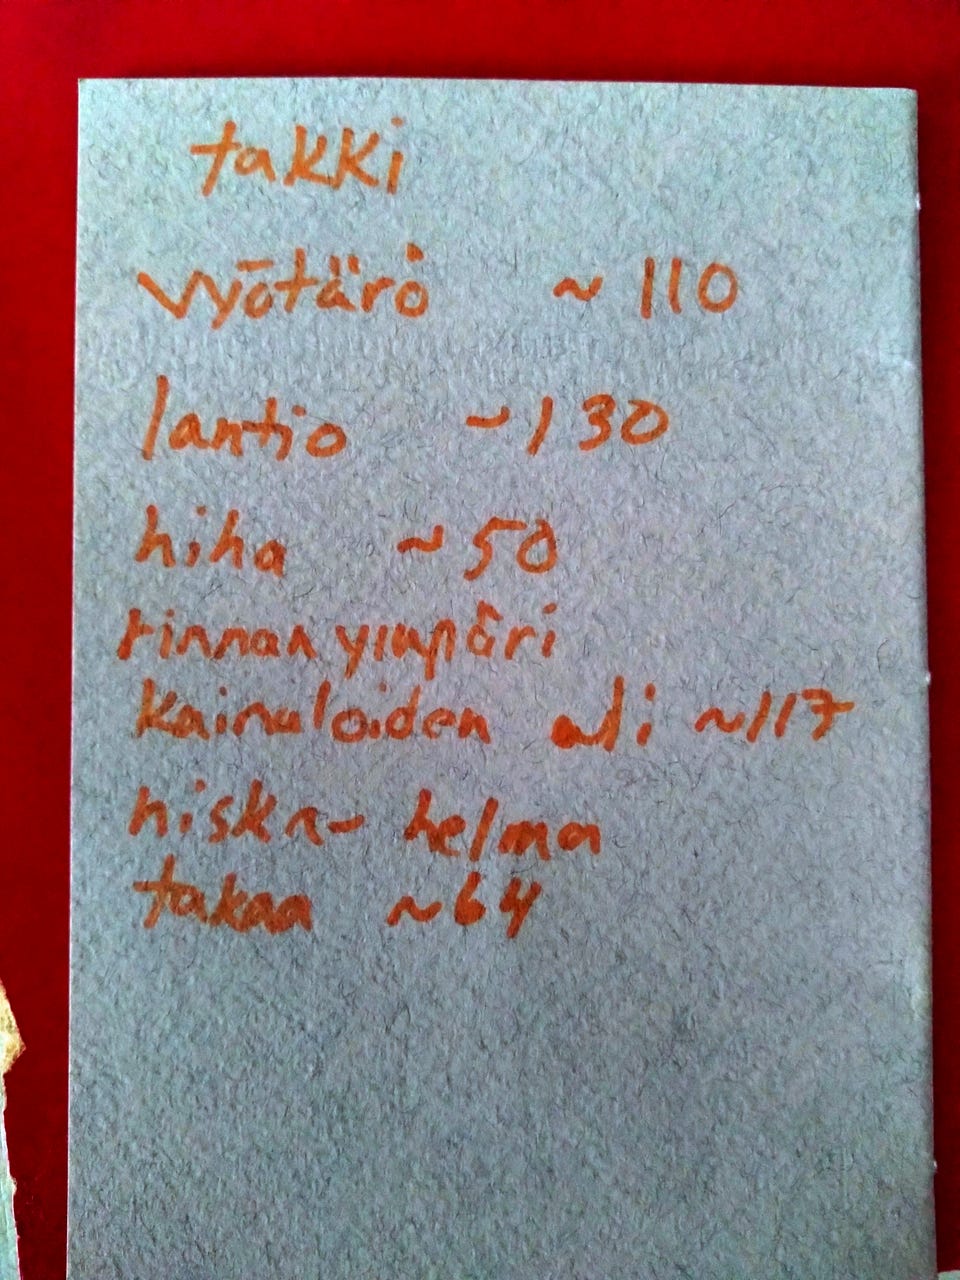 takki
vyötärö ~ 110
lantio ~130
hiha ~50
rinnan ympäri
kainaloiden ali ~117
niska- helma
takaa ~64